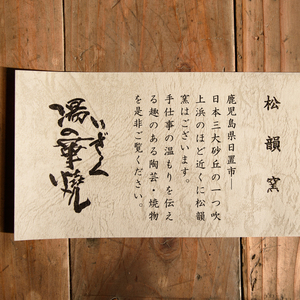 松韻窯
鹿児島県日置市―
日本三大砂丘の一つ吹
上浜のほど近くに松韻
窯はございます。
手仕事の温もりを伝え
る趣のある陶芸・焼物
を是非ご覧ください。
いざく
湯の華焼